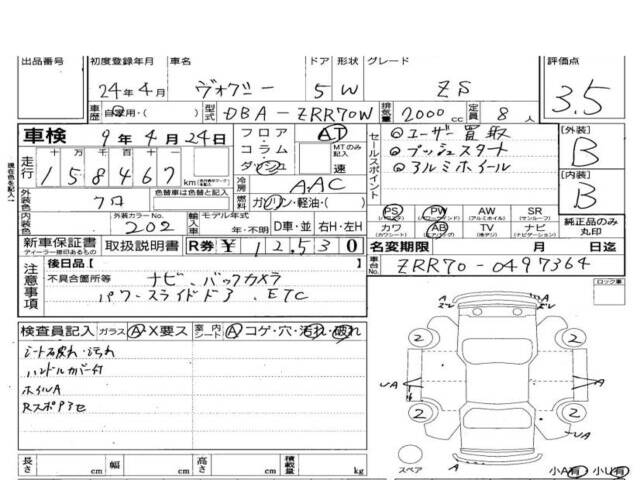 出品番号 初度登録年月 車名 ドア 形状 グレード 評価点
24年4月 ヴォクシー 5 W ZS 3.5
車歴 自家用・( ) 型式 DBA-ZRR70W 排気量 2000cc 定員 8人
車検 9年4月24日 フロア コラム ダッシュ AT MTのみ記入 速
セールスポイント
◎ユーザー買取
◎プッシュスタート
◎アルミホイール
[外装] B
[内装] B
走行 十万千百十一
158467 km
冷房 AAC
外装色 クロ 色替車は色替と記入 燃料 ガソリン・軽油・( )
内装色 外装カラーNo. 202 輸入車 モデル年式 年・不明 D車・並 右H・左H
PS AW SR
PW (パワーウィンド) (アルミホイール) (サンルーフ)
カワ AB TV ナビ
(ナビゲーション)
純正品のみ丸印
新車保証書 取扱説明書 R券 ¥ 12,530
ディーラー捺印あるもの
名変期限 月 日迄
現在色を記入
注意事項
後日品[ ]
不具合箇所等 ナビ、バックカメラ
パワースライドドア、ETC
車台No. ZRR70-0497364
検査員記入 ガラス A・X要ス 室内シート A コゲ・穴・汚れ・破れ
シート破れ・汚れ
ハンドルカバー付
ホイルA
RスポアTセ
ロック車
A
2 2
UA A
2 2
UA
A
スペア
小A有 小U有
長さ cm 幅 cm 高さ cm 積載量 kg